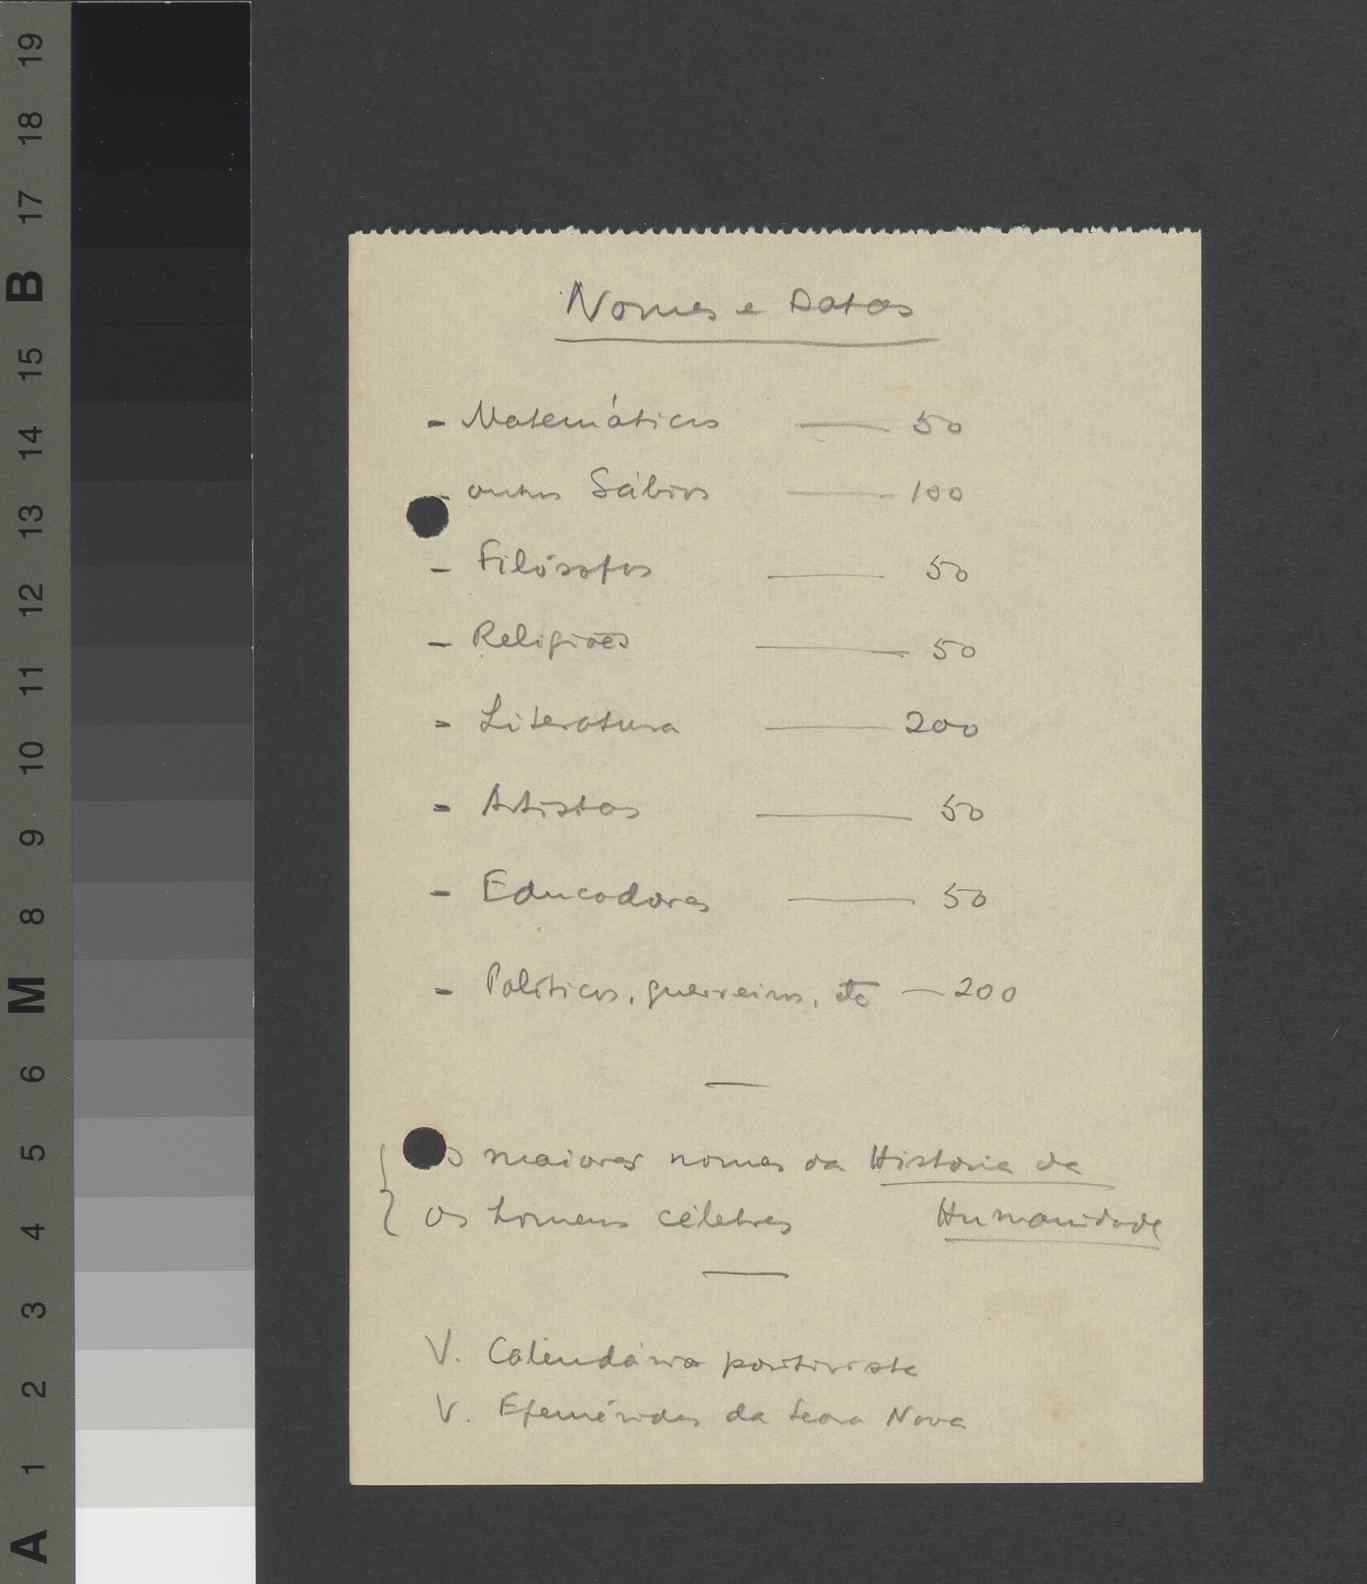 Nomes e Datas
- Matemáticos — 50
- outros Sábios — 100
- Filósofos — 50
- Religiões — 50
- Literatura — 200
- Artistas — 50
- Educadores — 50
- Políticos, guerreiros, etc — 200
—
{ Os maiores nomes da História da
{ Os homens célebres Humanidade
—
V. Calendário positivista
V. Efemérides da Seara Nova
19
18
17
B
15
14
13
12
11
10
9
8
M
6
5
4
3
2
1
A